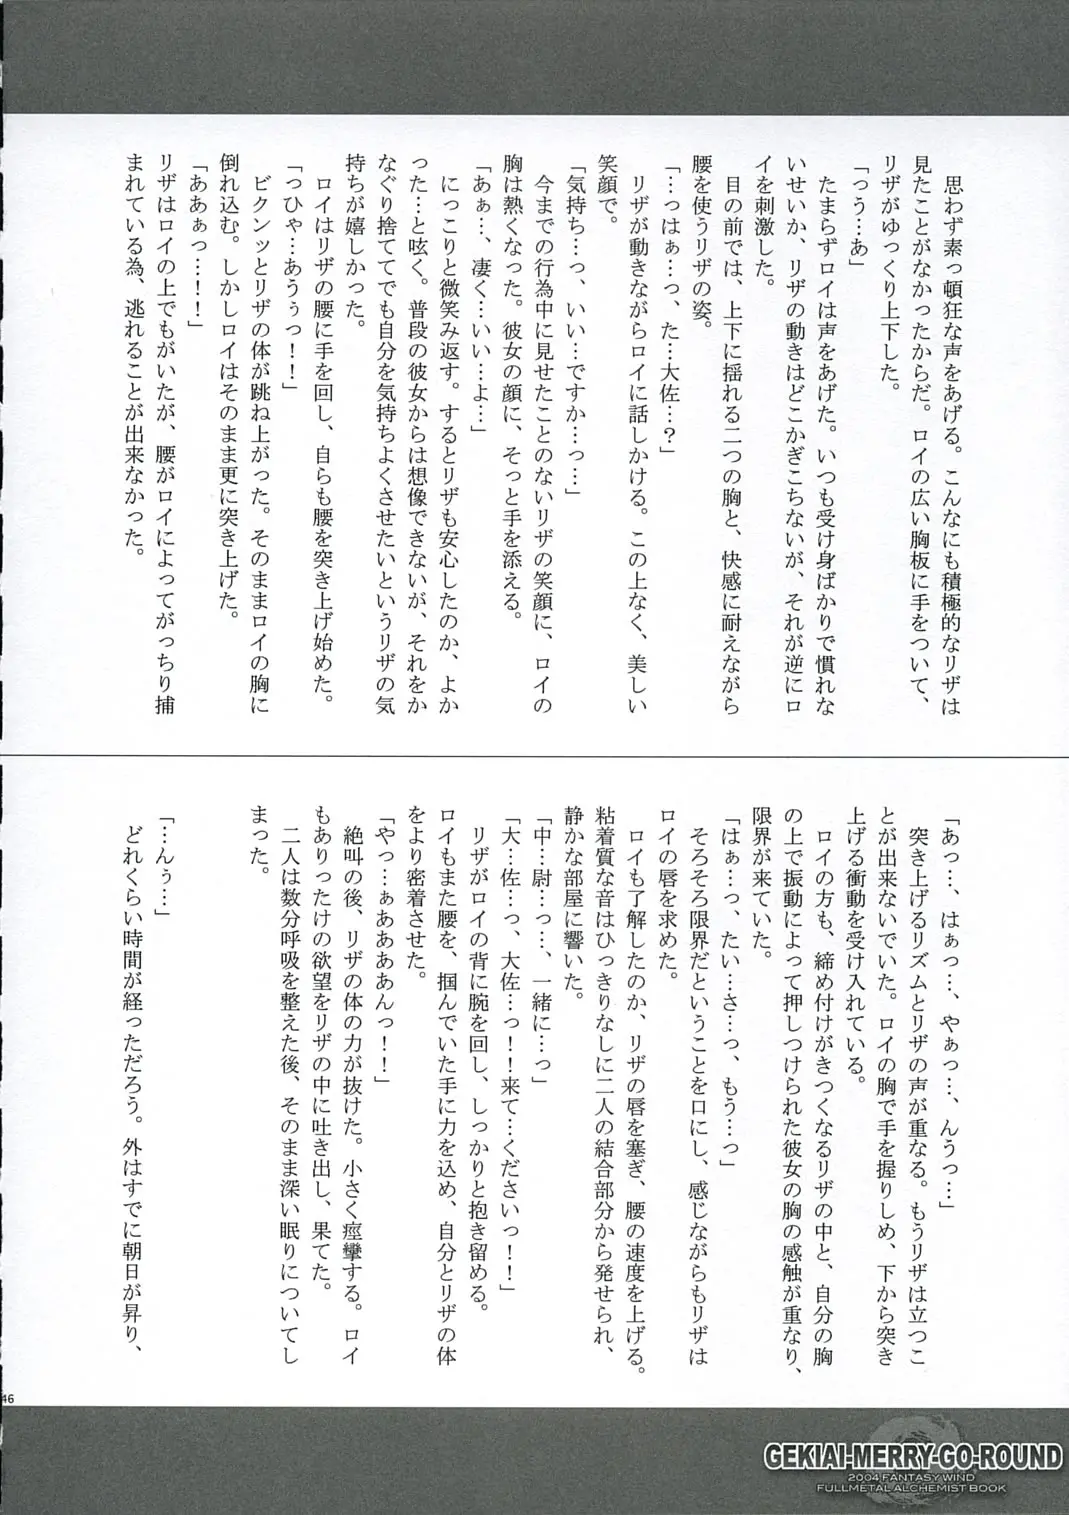 思わず素っ頓狂な声をあげる。こんなにも積極的なリザは
見たことがなかったからだ。ロイの広い胸板に手をついて、
リザがゆっくり上下した。
「っう…あ」
　たまらずロイは声をあげた。いつも受け身ばかりで慣れな
いせいか、リザの動きはどこかぎこちないが、それが逆にロ
イを刺激した。
　目の前では、上下に揺れる二つの胸と、快感に耐えながら
腰を使うリザの姿。
「…っはぁ…っ、た…大佐…？」
　リザが動きながらロイに話しかける。この上なく、美しい
笑顔で。
「気持ち…っ、いい…ですか…っ…」
　今までの行為中に見せたことのないリザの笑顔に、ロイの
胸は熱くなった。彼女の顔に、そっと手を添える。
「あぁ…、凄く…いい…よ…」
　にっこりと微笑み返す。するとリザも安心したのか、よか
った…と呟く。普段の彼女からは想像できないが、それをか
なぐり捨ててでも自分を気持ちよくさせたいというリザの気
持ちが嬉しかった。
　ロイはリザの腰に手を回し、自らも腰を突き上げ始めた。
「っひゃ…あうぅっ！！」
　ビクンッとリザの体が跳ね上がった。そのままロイの胸に
倒れ込む。しかしロイはそのまま更に突き上げた。
「ああぁっ…！！」
リザはロイの上でもがいたが、腰がロイによってがっちり捕
まれている為、逃れることが出来なかった。
「あっ…、はぁっ…、やぁっ…、んうっ…」
　突き上げるリズムとリザの声が重なる。もうリザは立つこ
とが出来ないでいた。ロイの胸で手を握りしめ、下から突き
上げる衝動を受け入れている。
　ロイの方も、締め付けがきつくなるリザの中と、自分の胸
の上で振動によって押しつけられた彼女の胸の感触が重なり、
限界が来ていた。
「はぁ…っ、たい…さ…っ、もう…っ」
　そろそろ限界だということを口にし、感じながらもリザは
ロイの唇を求めた。
　ロイも了解したのか、リザの唇を塞ぎ、腰の速度を上げる。
粘着質な音はひっきりなしに二人の結合部分から発せられ、
静かな部屋に響いた。
「中…尉…っ…、一緒に…っ」
「大…佐…っ、大佐…っ！！来て…くださいっ！！」
　リザがロイの背に腕を回し、しっかりと抱き留める。
ロイもまた腰を、掴んでいた手に力を込め、自分とリザの体
をより密着させた。
「やっ…ぁああああんっ！！」
　絶叫の後、リザの体の力が抜けた。小さく痙攣する。ロイ
もありったけの欲望をリザの中に吐き出し、果てた。
　二人は数分呼吸を整えた後、そのまま深い眠りについてし
まった。
「…んぅ…」
　どれくらい時間が経っただろう。外はすでに朝日が昇り、
46
GEKIAI-MERRY-GO-ROUND
2004 FANTASY WIND
FULLMETAL ALCHEMIST BOOK